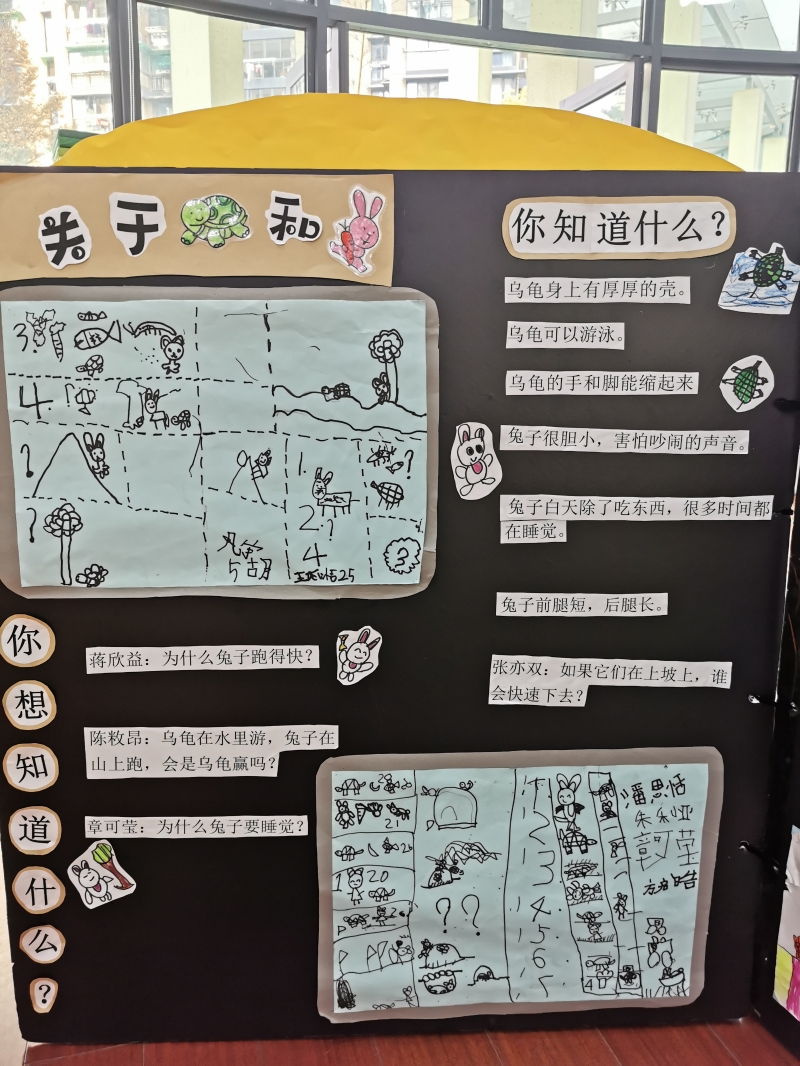 关于 和
你知道什么?
乌龟身上有厚厚的壳。
乌龟可以游泳。
乌龟的手和脚能缩起来
兔子很胆小，害怕吵闹的声音。
兔子白天除了吃东西，很多时间都
在睡觉。
兔子前腿短，后腿长。
张亦双：如果它们在上坡上，谁
会快速下去？
3.
4.
?
?
1.
2.
?
4
?
?
你想知道什么?
蒋欣益：为什么兔子跑得快？
陈敉昂：乌龟在水里游，兔子在
山上跑，会是乌龟赢吗？
章可莹：为什么兔子要睡觉？
21
1 20
??
1
2
3
4
5
6
7
潘思恬